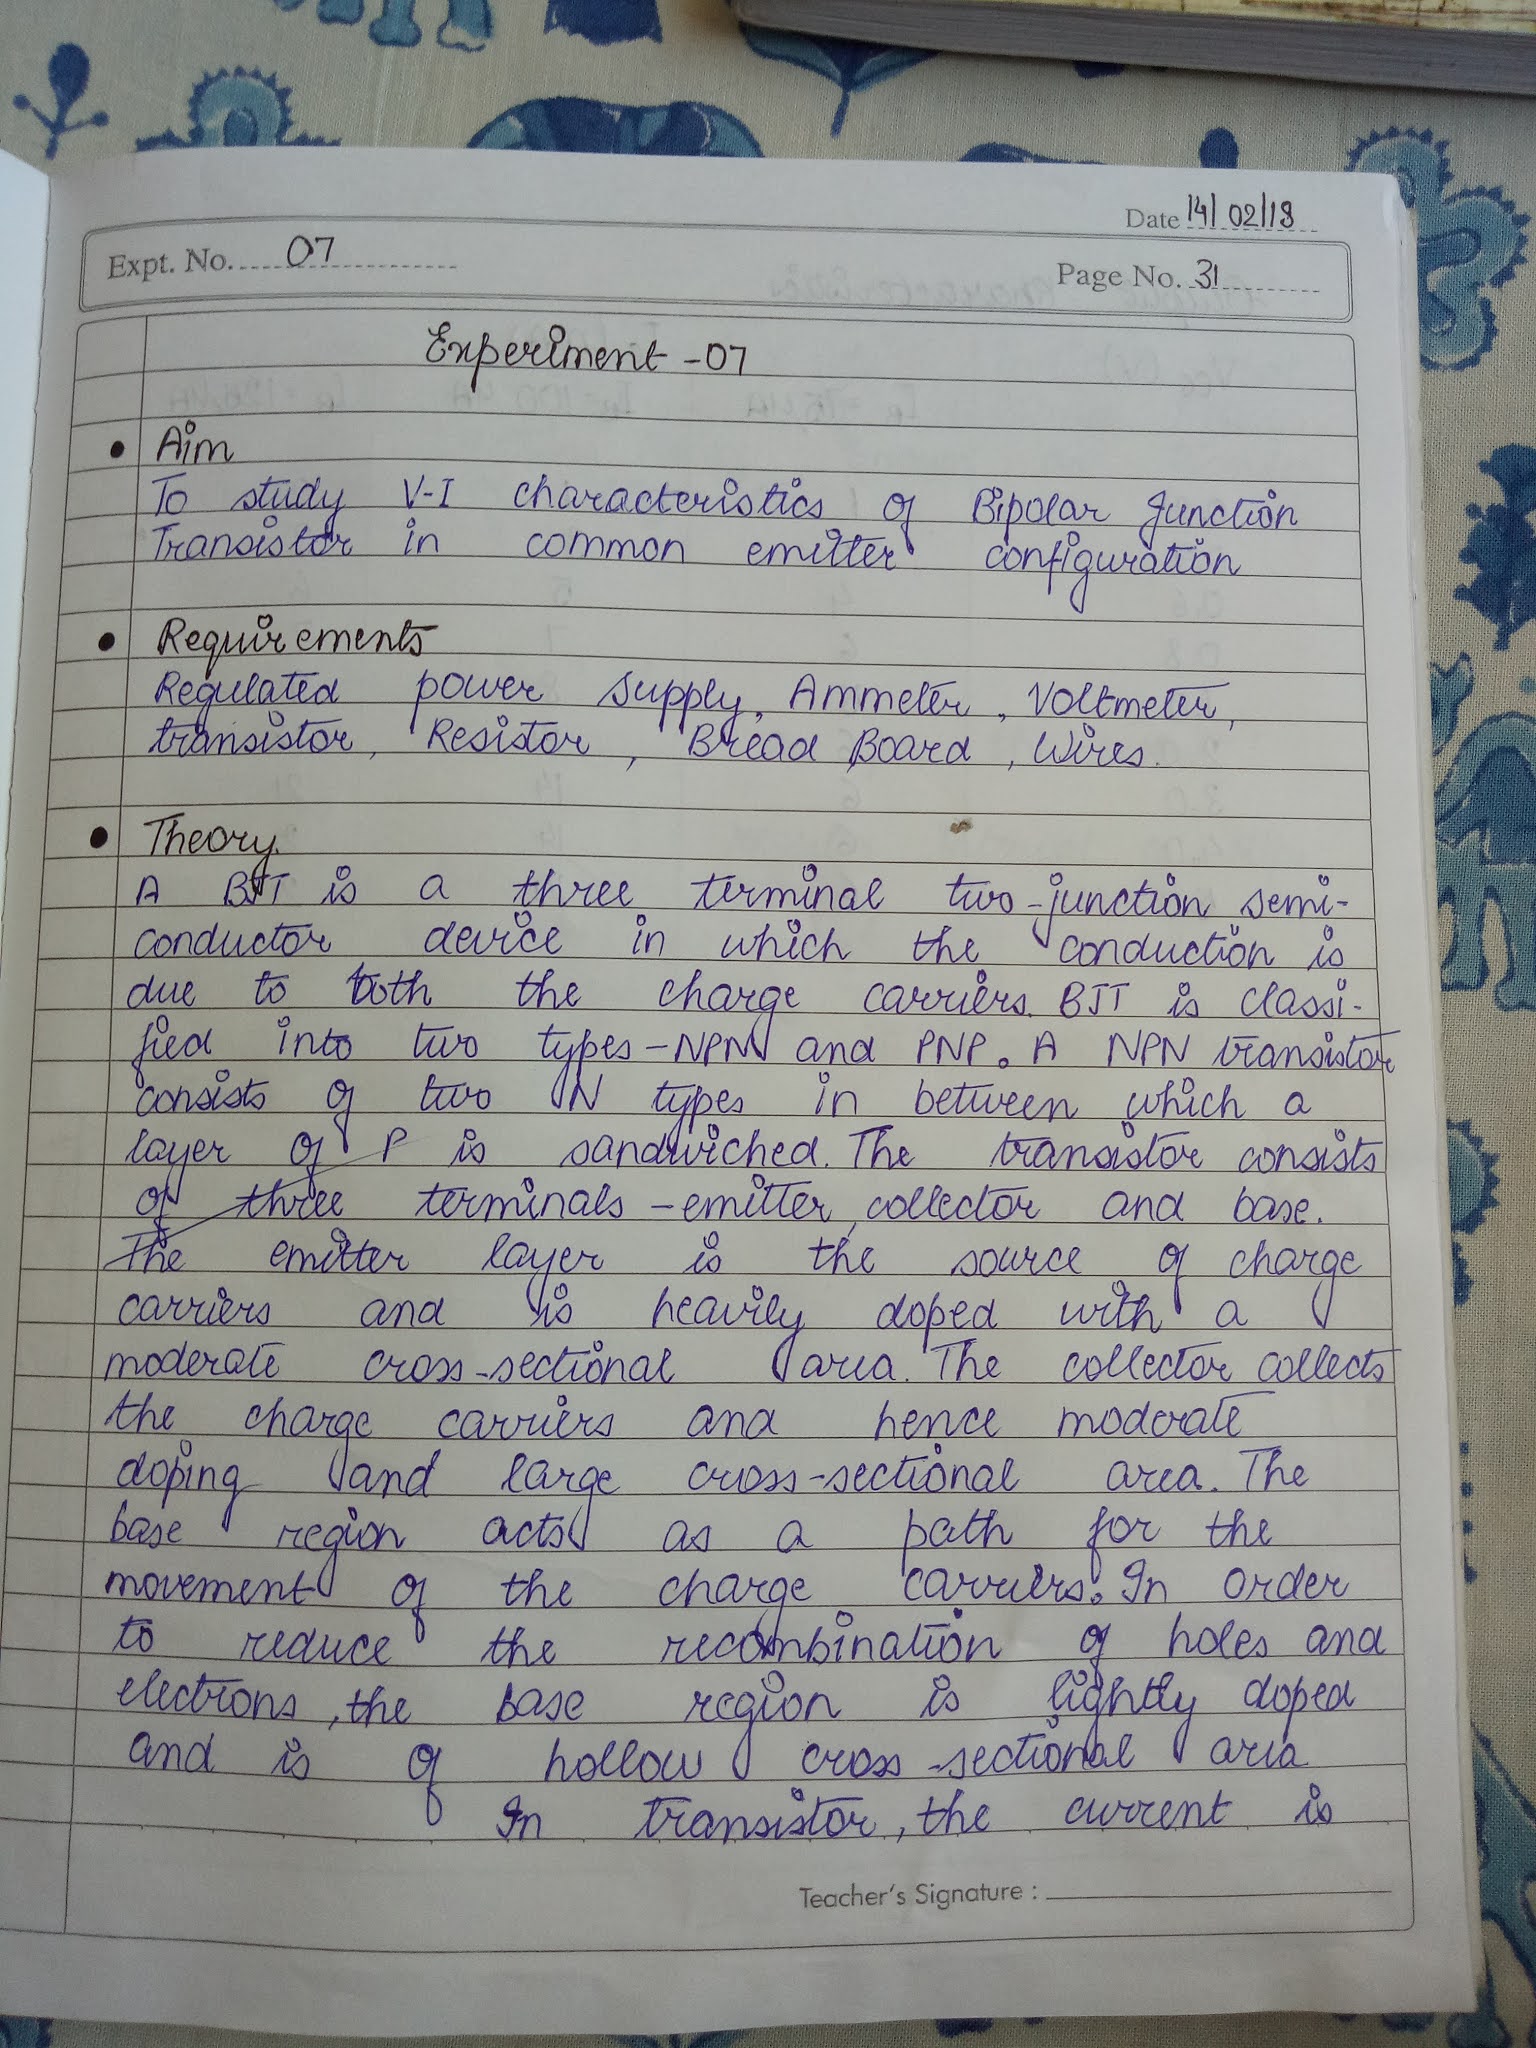 Date 14/02/19
Expt. No. 07
Page No. 31
Experiment - 07
• Aim
To study V-I characteristics of Bipolar Junction
Transistor in common emitter configuration
• Requirements
Regulated power supply, Ammeter, Voltmeter,
transistor, Resistor, Bread Board, Wires.
• Theory.
A BJT is a three terminal two-junction semi-
conductor device in which the conduction is
due to both the charge carriers. BJT is classi-
fied into two types - NPN and PNP. A NPN transistor
consists of two N types in between which a
layer of P is sandwiched. The transistor consists
of three terminals - emitter, collector and base.
The emitter layer is the source of charge
carriers and is heavily doped with a
moderate cross-sectional area. The collector collects
the charge carriers and hence moderate
doping and large cross-sectional area. The
base region acts as a path for the
movement of the charge carriers. In order
to reduce the recombination of holes and
electrons, the base region is lightly doped
and is of hollow cross-sectional area
In transistor, the current is
Teacher's Signature :